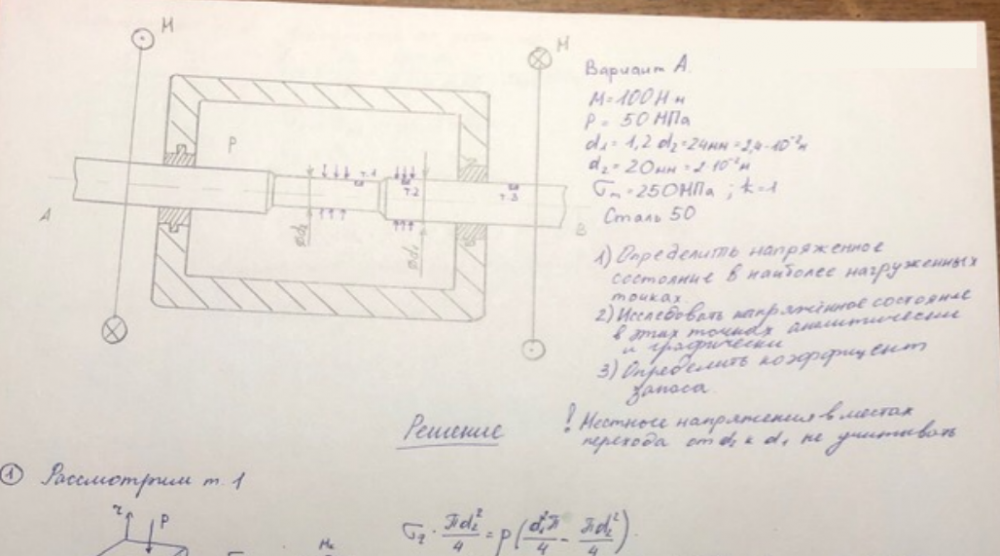 M
M
P
т.1
т.2
т.3
A
B
ød₂
ød₁
Вариант А.
M=100 Н м
P = 50 МПа
d₁ = 1,2 d₂ = 24мм = 2,4·10⁻² м
d₂ = 20мм = 2·10⁻² м
σт = 250 МПа ; k=1
Сталь 50
1) Определить напряженное
состояние в наиболее нагруженных
точках.
2) Исследовать напряжённое состояние
в этих точках аналитически
и графически
3) Определить коэффициент
запаса.
! Местные напряжения в местах
перехода от d₂ к d₁ не учитывать
Решение
① Рассмотрим т. 1
r P
σz · πd₂²/4 = p(d₁²π/4 - πd₂²/4)